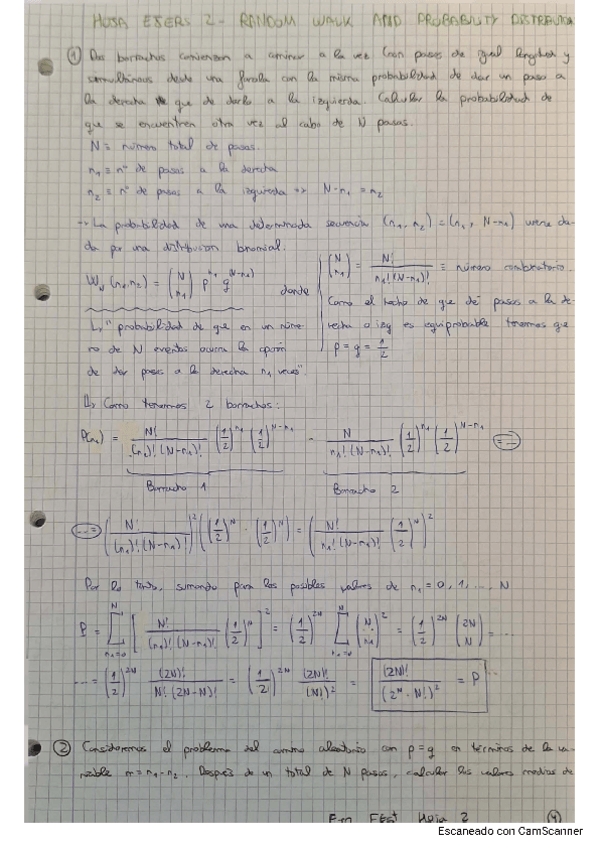 HOJA EJERS 2 - RANDOM WALK AND PROBABILITY DISTRIBUTION
① Dos borrachos comienzan a caminar a la vez (con pasos de igual longitud y
simultáneos desde una farola con la misma probabilidad de dar un paso a
la derecha que de darlo a la izquierda. Calcular la probabilidad de
que se encuentren otra vez al cabo de N pasos.
N ≡ número total de pasos.
n₁ ≡ nº de pasos a la derecha
n₂ ≡ nº de pasos a la izquierda → N-n₁ = n₂
→ La probabilidad de una determinada secuencia (n₁, n₂) = (n₁, N-n₁) viene da-
da por una distribución binomial.
W_N(n₁,n₂) = (N n₁) p^n₁ q^(N-n₁) donde
(N n₁) = N! / n₁!(N-n₁)! ≡ número combinatorio.
Como el hecho de que de pasos a la de-
recha o izq es equiprobable tenemos que
p = q = 1/2
↳ "probabilidad de que en un núme-
ro de N eventos ocurra la opción
de dar pasos a la derecha n₁ veces".
↳ Como tenemos 2 borrachos:
P(n₁) = N! / (n₁)!(N-n₁)! (1/2)^n₁ (1/2)^(N-n₁) · N / n₁!(N-n₁)! (1/2)^n₁ (1/2)^(N-n₁) = ...
Borracho 1 Borracho 2
... = (N! / (n₁)!(N-n₁)!)² ((1/2)^N · (1/2)^N) = (N! / n₁!(N-n₁)! (1/2)^N)²
Por lo tanto, sumando para los posibles valores de n₁ = 0, 1, ..., N
P = Σ_(n₁=0)^N [N! / (n₁)!(N-n₁)! (1/2)^N]² = (1/2)^2N Σ_(n₁=0)^N (N n₁)² = (1/2)^2N (2N N) = ...
... = (1/2)^2N (2N)! / N!(2N-N)! = (1/2)^2N (2N)! / (N!)² = (2N)! / (2^N · N!)² = P
② Consideremos el problema del camino aleatorio con p = q en términos de la va-
riable m = n₁ - n₂. Después de un total de N pasos, calcular los valores medios de
Hoja 2
Escaneado con CamScanner